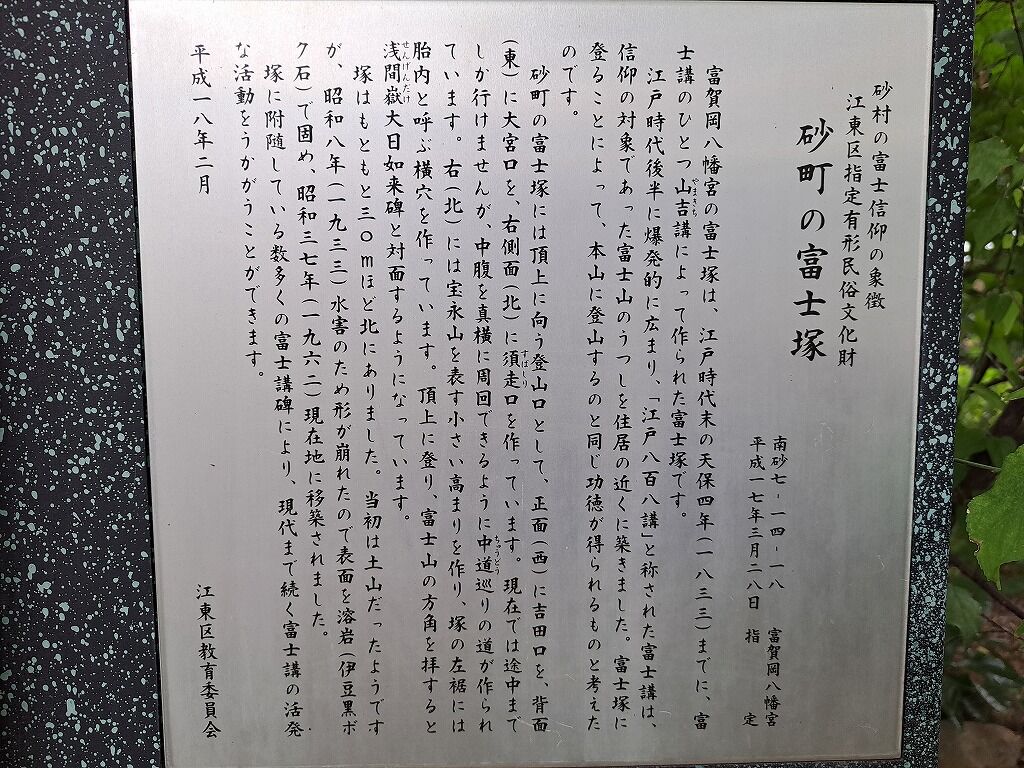 砂村の富士信仰の象徴
江東区指定有形民俗文化財
砂町の富士塚
南砂七-一四-一八 富賀岡八幡宮
平成一七年三月二八日 指定
富賀岡八幡宮の富士塚は、江戸時代末の天保四年(一八三三)までに、富
士講のひとつ山吉講によって作られた富士塚です。
江戸時代後半に爆発的に広まり、「江戸八百八講」と称された富士講は、
信仰の対象であった富士山のうつしを住居の近くに築きました。富士塚に
登ることによって、本山に登山するのと同じ功徳が得られるものと考えた
のです。
砂町の富士塚には頂上に向う登山口として、正面(西)に吉田口を、背面
(東)に大宮口を、右側面(北)に須走口を作っています。現在では途中まで
しか行けませんが、中腹を真横に周回できるように中道巡りの道が作られ
ています。右(北)には宝永山を表す小さい高まりを作り、塚の左裾には
胎内と呼ぶ横穴を作っています。頂上に登り、富士山の方角を拝すると
浅間嶽大日如来碑と対面するようになっています。
塚はもともと三〇mほど北にありました。当初は土山だったようです
が、昭和八年(一九三三)水害のため形が崩れたので表面を溶岩(伊豆黒ボ
ク石)で固め、昭和三七年(一九六二)現在地に移築されました。
塚に附随している数多くの富士講碑により、現代まで続く富士講の活発
な活動をうかがうことができます。
平成一八年二月
江東区教育委員会